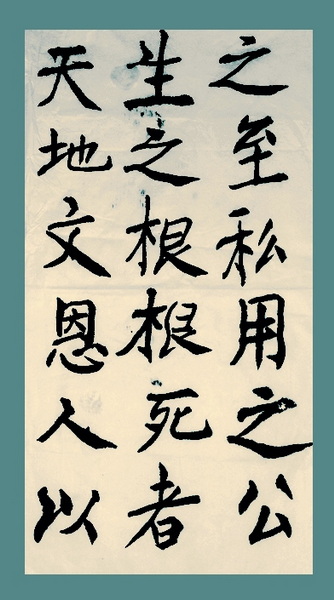 之至私用之公
生之根根死者
天地文恩人以